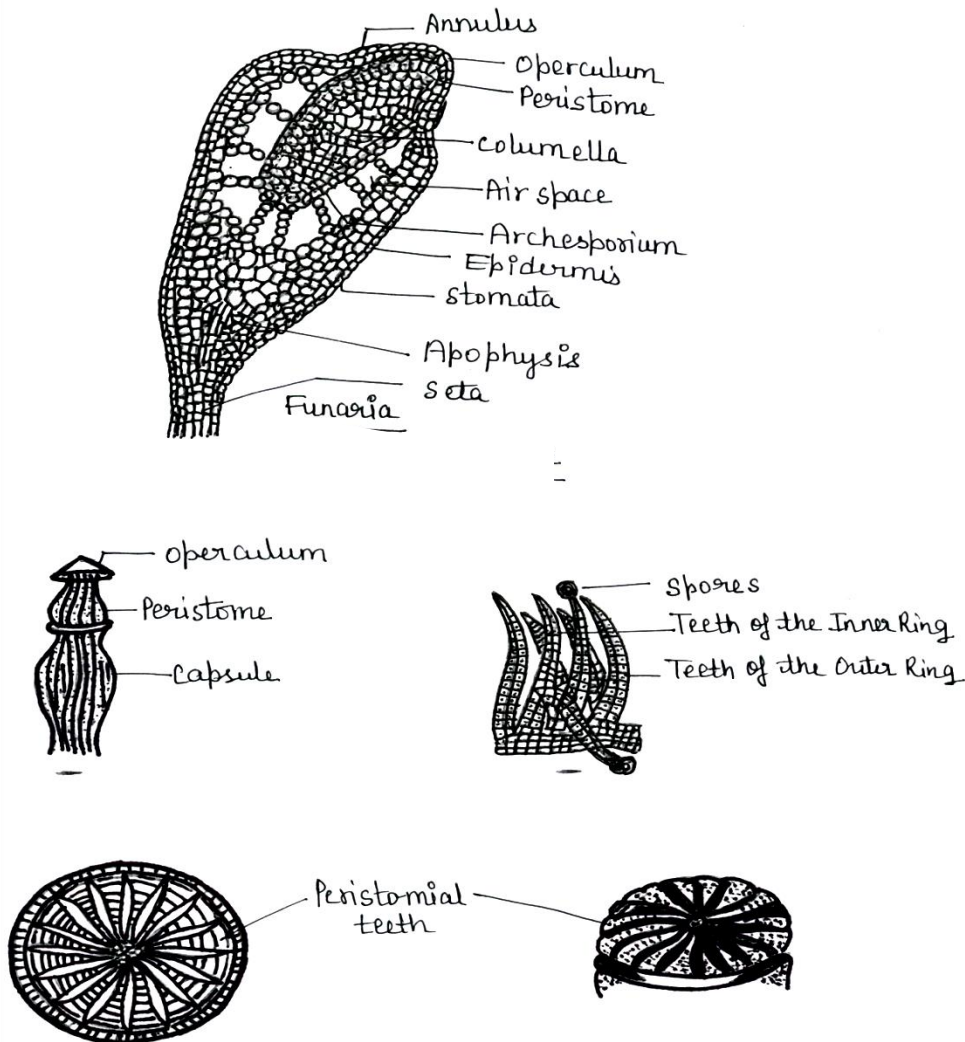 Annulus
Operculum
Peristome
Columella
Air space
Archesporium
Epidermis
Stomata
Apophysis
Seta
Funaria
Operculum
Peristome
Capsule
Spores
Teeth of the Inner Ring
Teeth of the Outer Ring
Peristomial
teeth